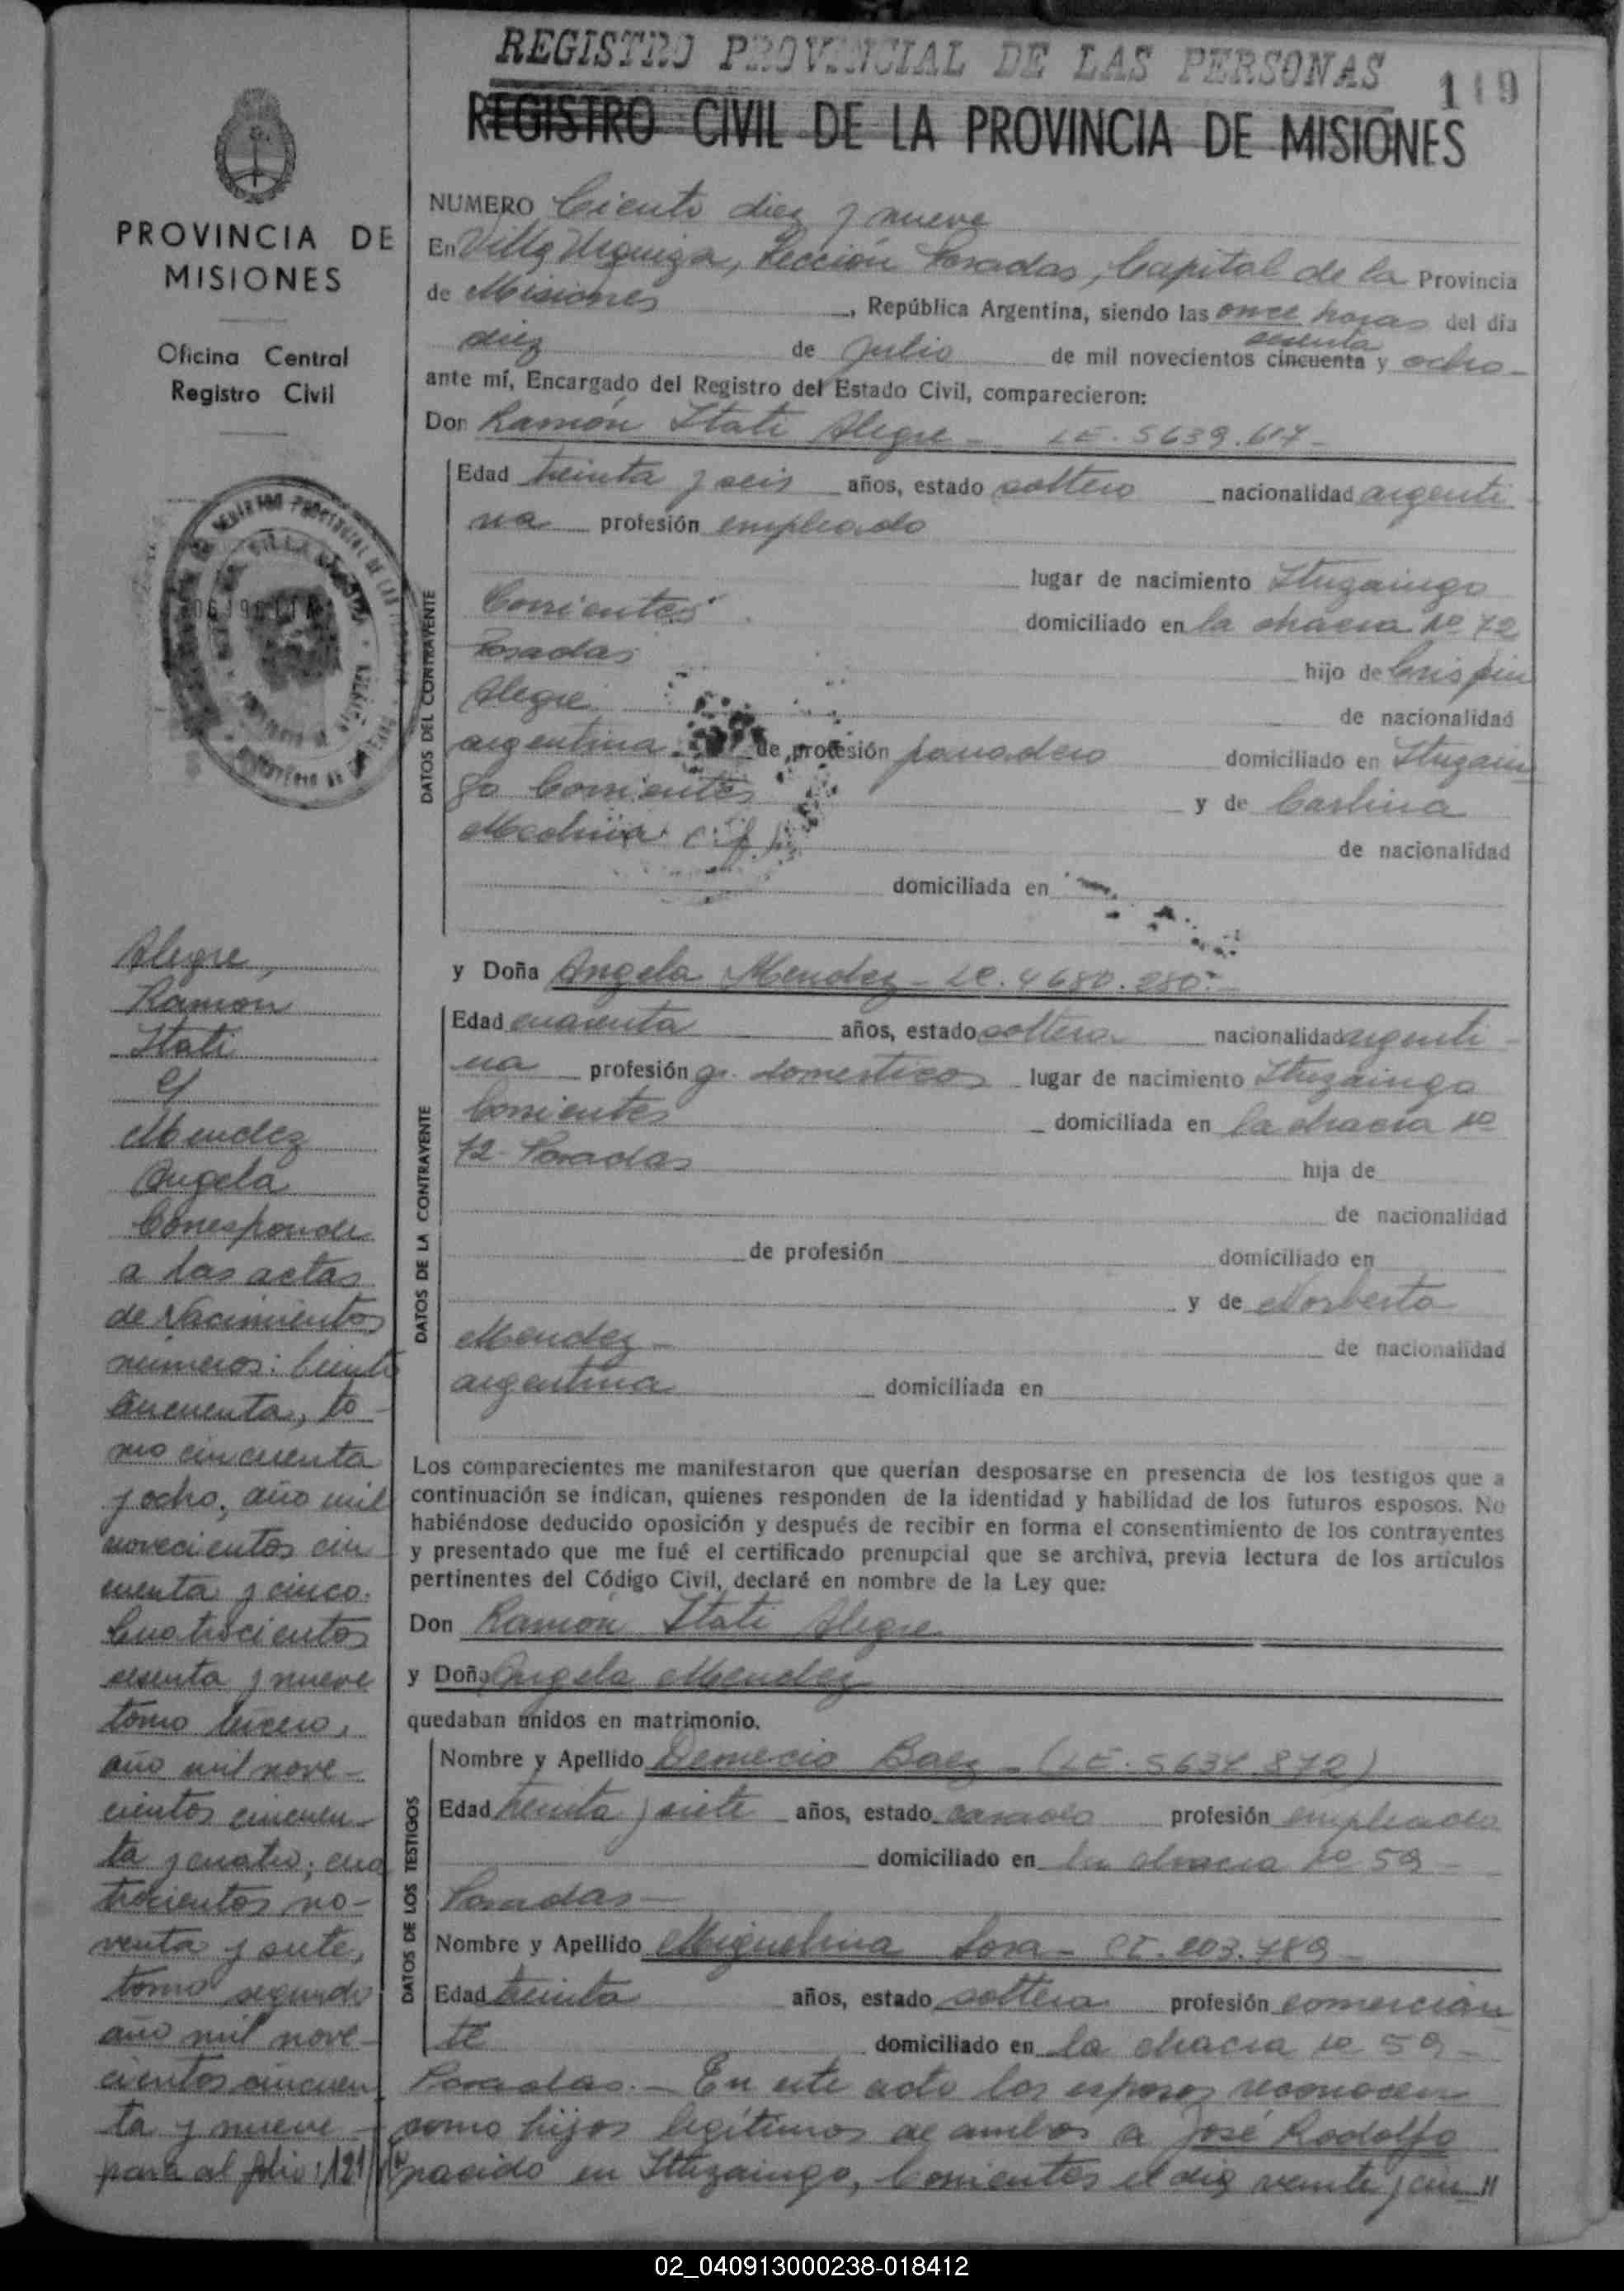 REGISTRO PROVINCIAL DE LAS PERSONAS
119
REGISTRO CIVIL DE LA PROVINCIA DE MISIONES
PROVINCIA DE
MISIONES
Oficina Central
Registro Civil
NUMERO Ciento diez y nueve
En Villa Urquiza, Sección Posadas, Capital de la Provincia
de Misiones, República Argentina, siendo las once horas del día
sesenta
diez de julio de mil novecientos cincuenta y ocho
ante mí, Encargado del Registro del Estado Civil, comparecieron:
Don Ramón Itati Alegre - LE. 5639.617-
DATOS DEL CONTRAYENTE
Edad treinta y seis años, estado soltero nacionalidad argenti
na profesión empleado
lugar de nacimiento Ituzaingo
Corrientes domiciliado en la chacra No 72
Posadas hijo de Crispin
Alegre de nacionalidad
argentina de profesión panadero domiciliado en Ituzain
go Corrientes y de Carlina
Medina (f) de nacionalidad
domiciliada en
y Doña Angela Mendez - LC. 4680.280.-
DATOS DE LA CONTRAYENTE
Edad cuarenta años, estado soltera nacionalidad argenti
na profesión q. domesticos lugar de nacimiento Ituzaingo
Corrientes domiciliada en la chacra No
72- Posadas hija de
de nacionalidad
de profesión domiciliado en
y de Norberta
Mendez - de nacionalidad
argentina domiciliada en
Los comparecientes me manifestaron que querían desposarse en presencia de los testigos que a
continuación se indican, quienes responden de la identidad y habilidad de los futuros esposos. No
habiéndose deducido oposición y después de recibir en forma el consentimiento de los contrayentes
y presentado que me fué el certificado prenupcial que se archiva, previa lectura de los artículos
pertinentes del Código Civil, declaré en nombre de la Ley que:
Don Ramón Itati Alegre
y Doña Angela Mendez
quedaban unidos en matrimonio.
DATOS DE LOS TESTIGOS
Nombre y Apellido Demecio Baez - (LE. 5637.872)
Edad treinta y siete años, estado casado profesión empleado
domiciliado en la chacra No 59 -
Posadas -
Nombre y Apellido Miguelina Sosa - CI. 203.789 -
Edad treinta años, estado soltera profesión comercian
te domiciliado en la chacra No 59 -
Posadas. - En este acto los esposos reconocen
como hijos legítimos de ambos a José Rodolfo
nacido en Ituzaingo, Corrientes el dia veinte y cin "
Alegre,
Ramón
Itati
y
Mendez
Angela
Corresponde
a las actas
de Nacimientos
números: Ciento
cincuenta, to-
mo cincuenta
y ocho, año mil
novecientos cin
cuenta y cinco.
Cuatrocientos
sesenta y nueve
tomo tercero,
año mil nove-
cientos cincuen-
ta y cuatro; cua
trocientos no-
venta y siete,
tomo segundo
año mil nove-
cientos cincuen
ta y nueve -
pasa al folio: 121
02_040913000238-018412